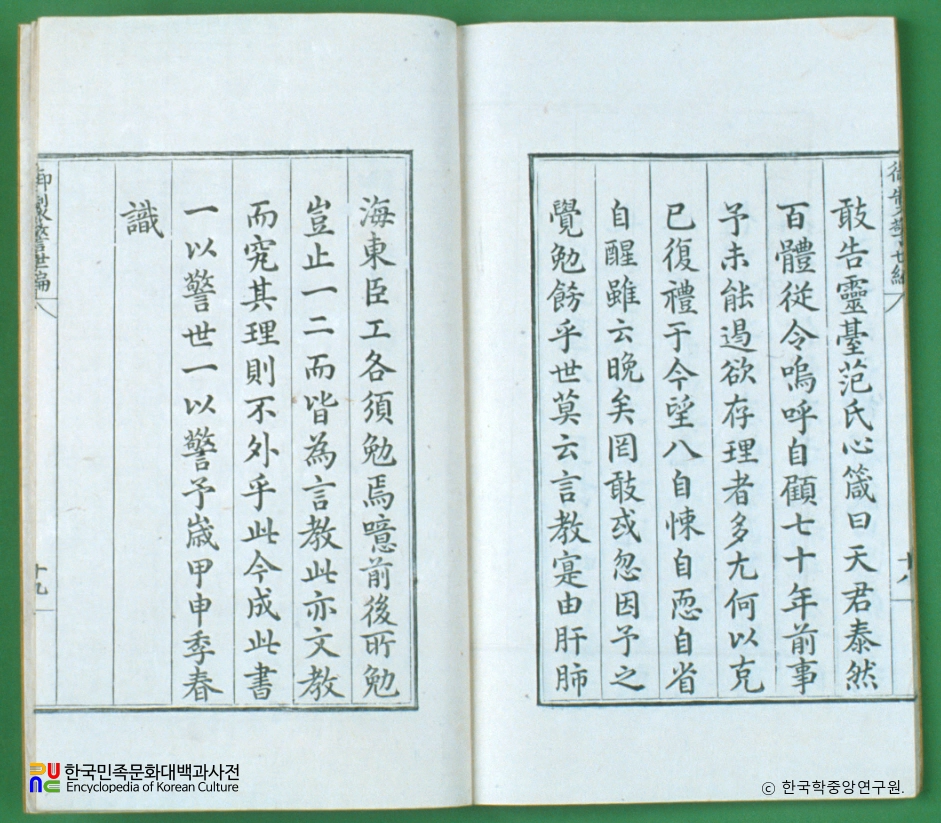 敢告靈臺范氏心箴曰天君泰然
百體從令嗚呼自顧七十年前事
予未能遏欲存理者多尢何以克
已復禮于今望八自悚自恧自省
自醒雖云晚矣罔敢或忽因予之
覺勉飭乎世莫云言教寔由肝肺
十八
海東臣工各須勉焉噫前後所勉
豈止一二而皆為言教此亦文教
而究其理則不外乎此今成此書
一以警世一以警予歲甲申季春
識
御製警世編
十九
한국민족문화대백과사전
Encyclopedia of Korean Culture
© 한국학중앙연구원.